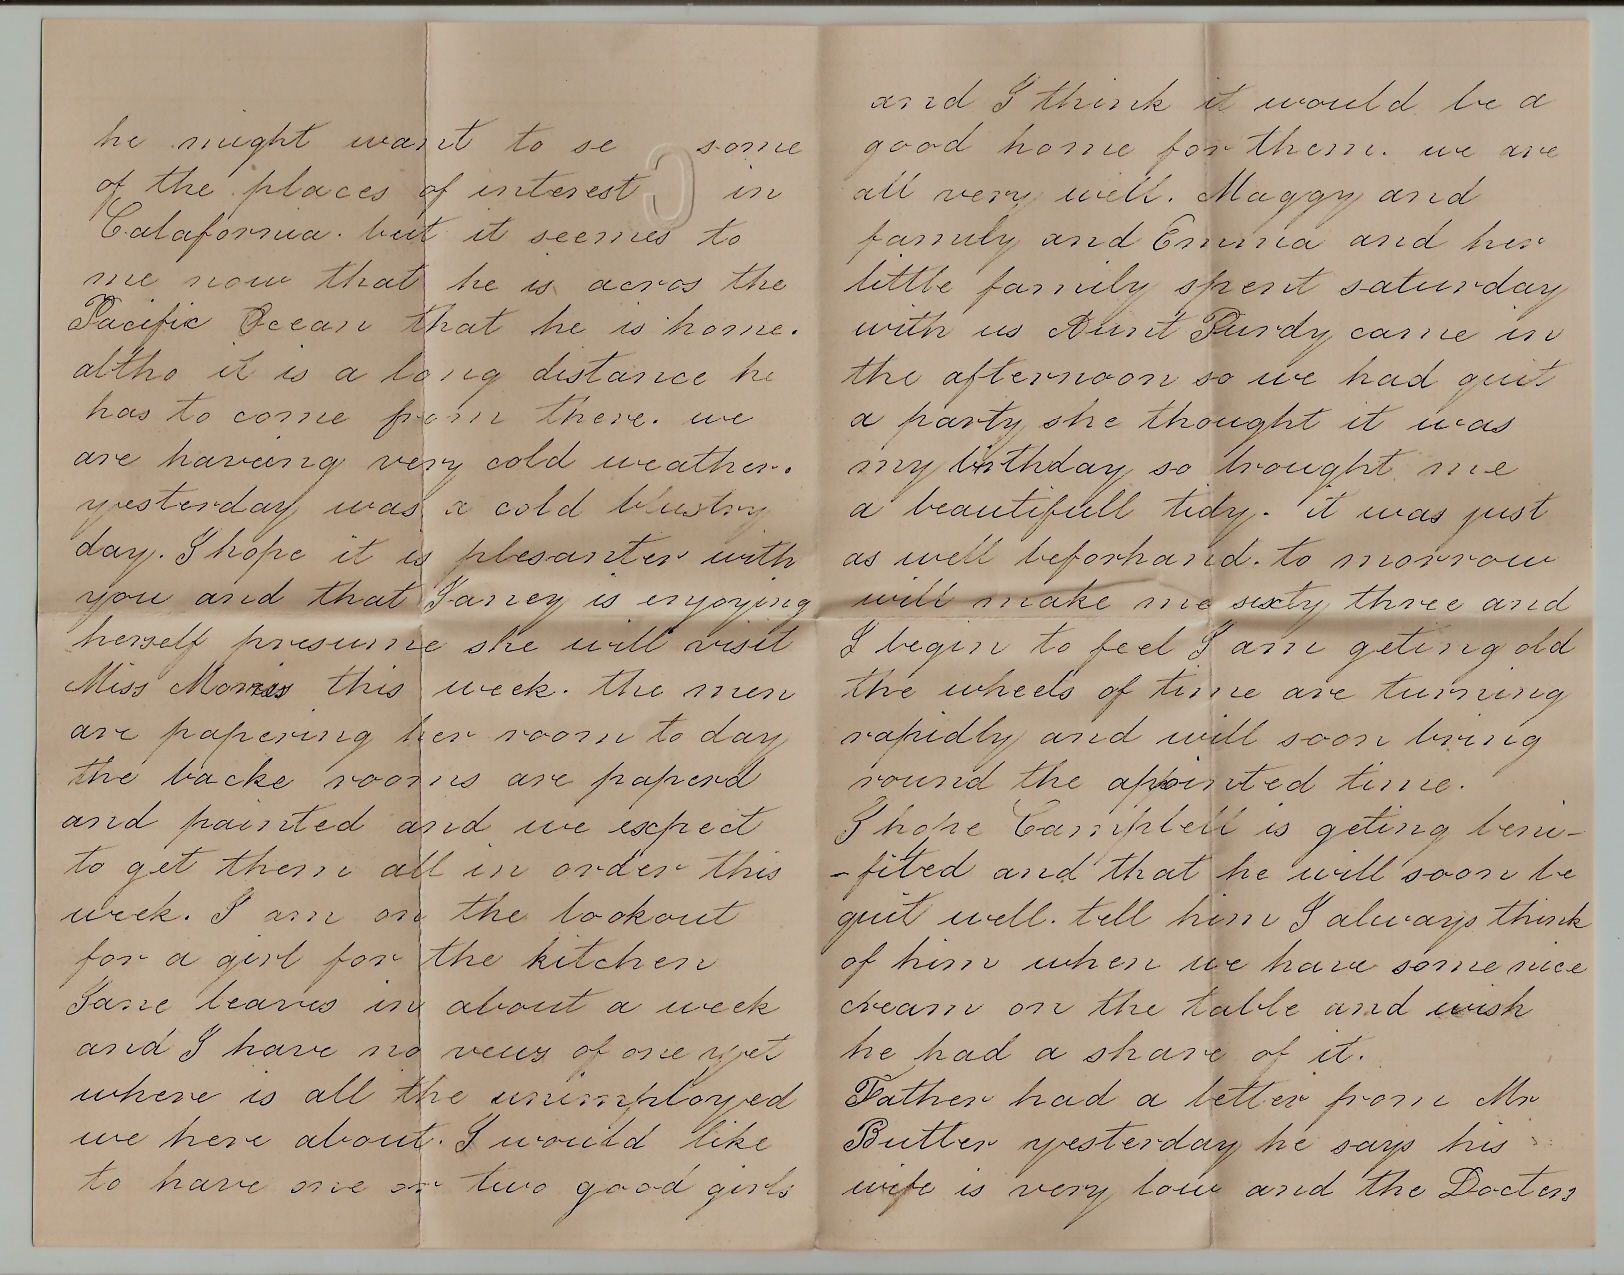 he might want to se some
of the places of interest in
Calafornia. but it seemes to
me now that he is acros the
Pacific Ocean that he is home.
altho it is a long distance he
has to come from there. we
are haveing very cold weather.
yesterday was a cold blustry
day. I hope it is plesanter with
you and that Janey is enjoying
herself presume she will visit
Miss Morriss this week. the men
are papering her room to day
the backe rooms are paperd
and painted and we expect
to get them all in order this
week. I am on the lookout
for a girl for the kitchen
Jane leaves in about a week
and I have no veus of one yet
where is all the unimployed
we here about. I would like
to have one or two good girls
and I think it would be a
good home for them. we are
all very well. Maggy and
family and Emma and her
little family spent saturday
with us Aunt Purdy came in
the afternoon so we had quit
a party she thought it was
my birthday so brought me
a beautifull tidy. it was just
as well beforhand. to morrow
will make me sixty three and
I begin to feel I am geting old
the wheels of time are turning
rapidly and will soon bring
round the apointed time.
I hope Campbell is geting beni-
-fited and that he will soon be
quit well. tell him I always think
of him when we have some nice
cream on the table and wish
he had a share of it.
Father had a letter from Mr
Butler yesterday he says his
wife is very low and the Docters